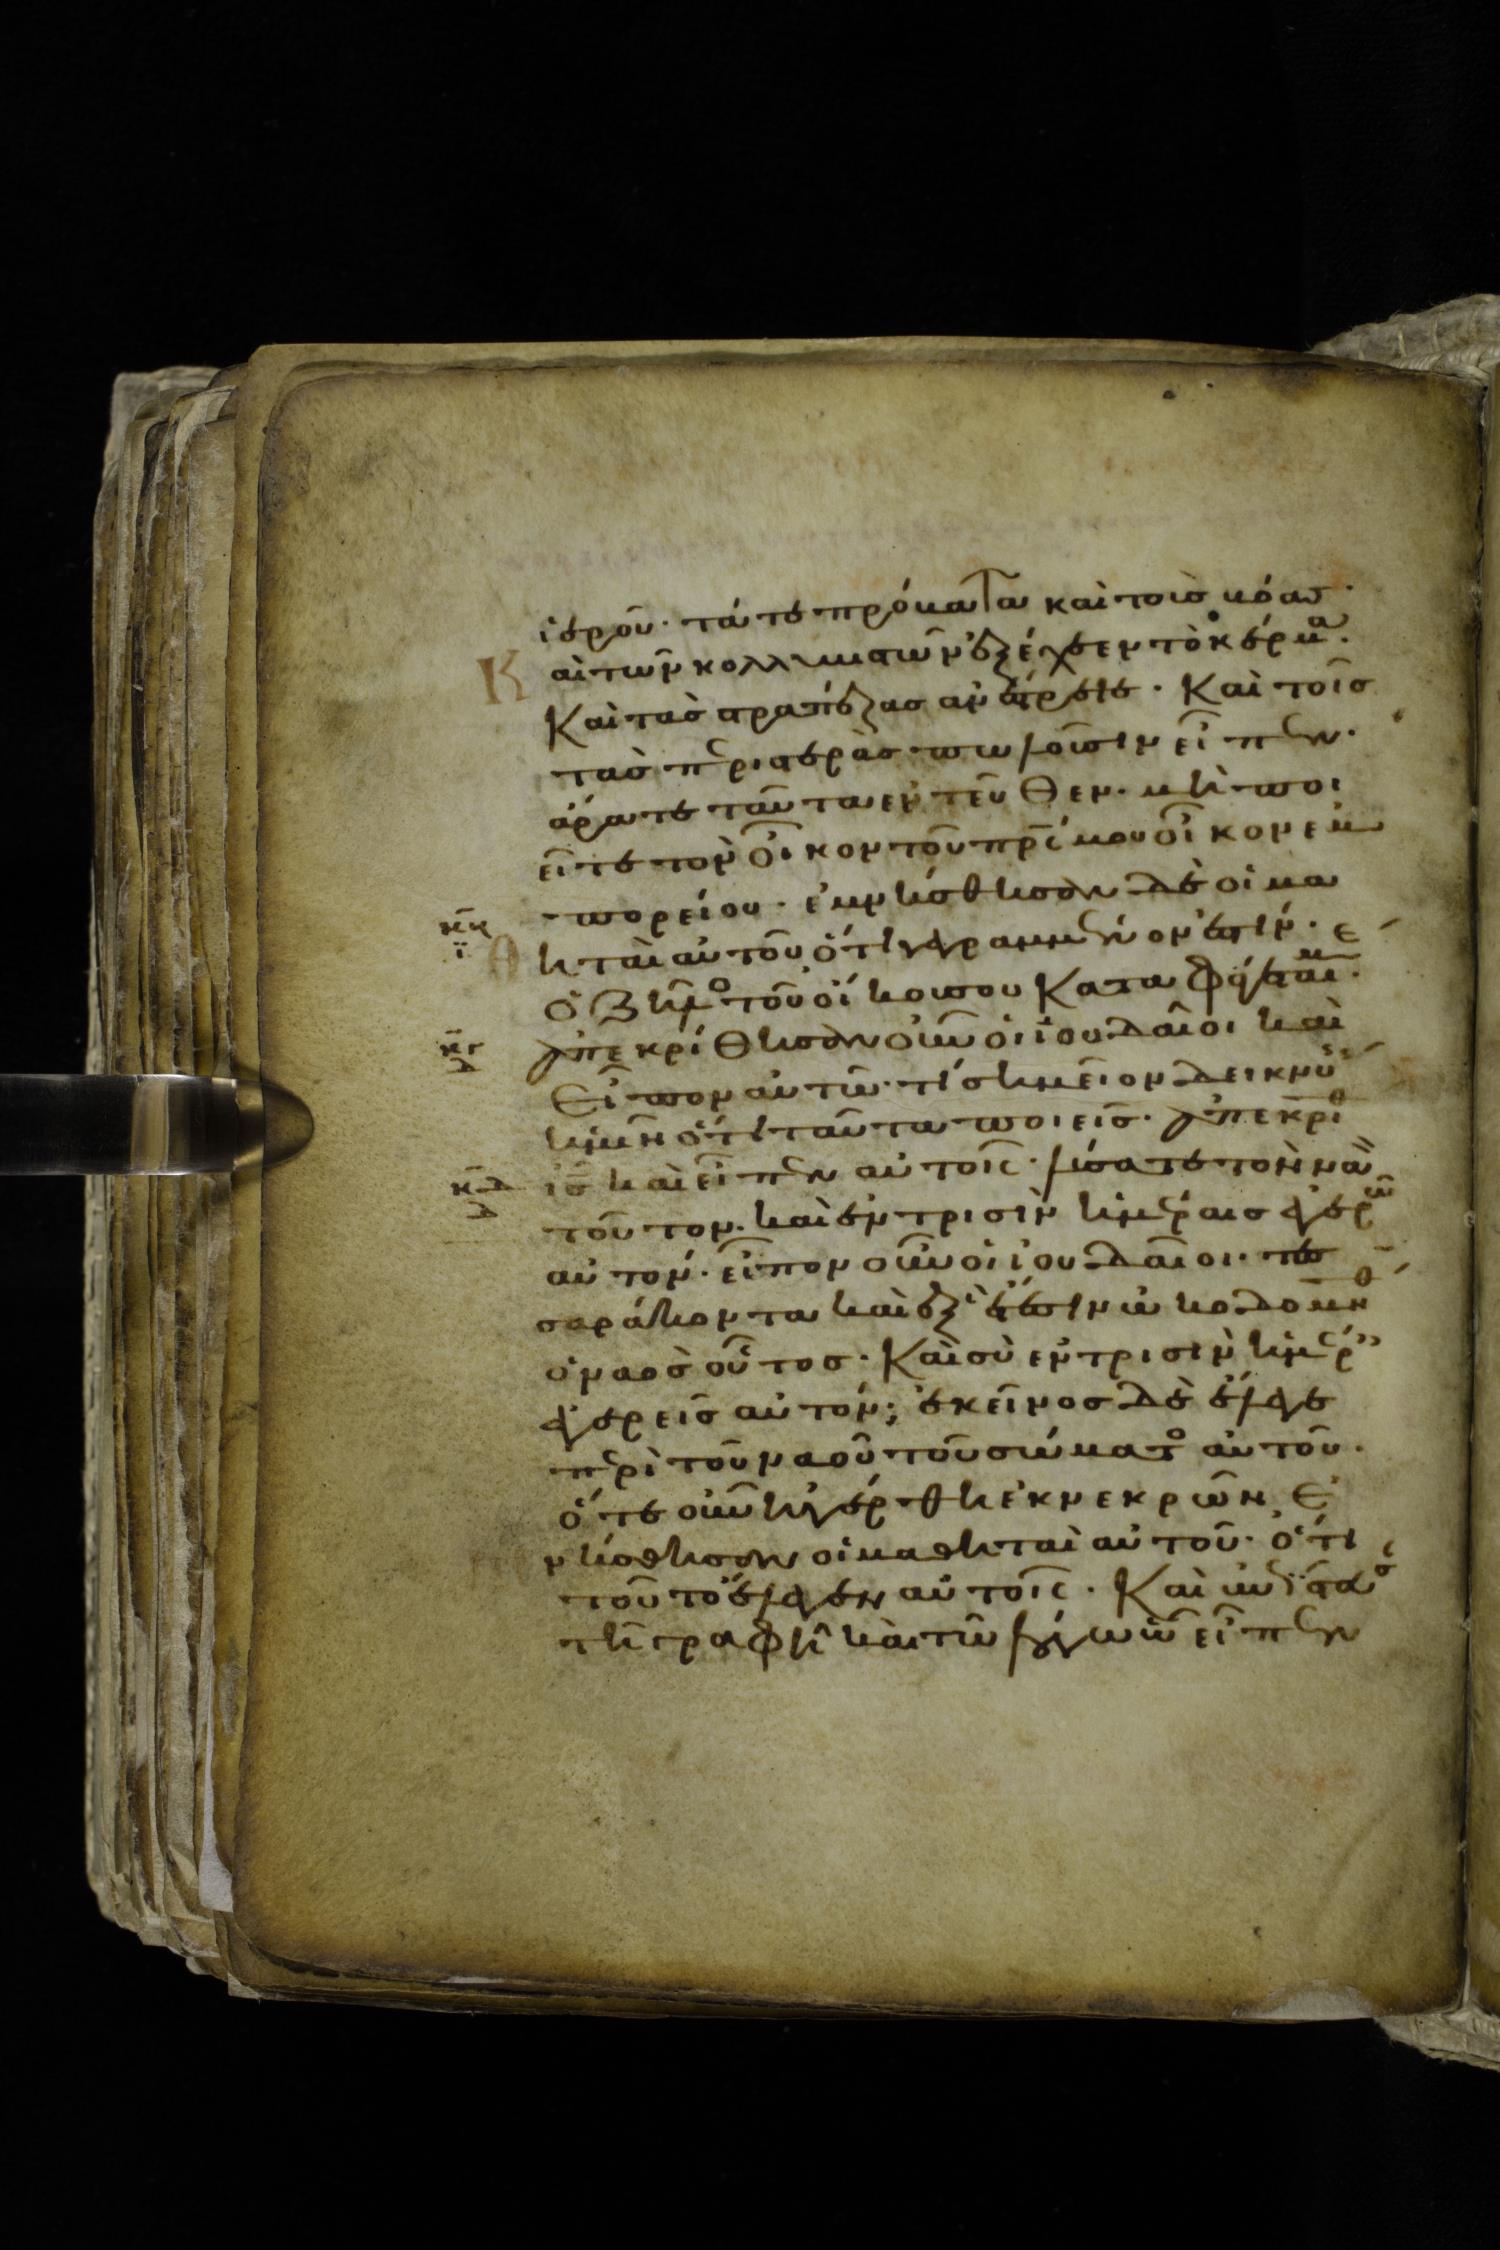 ἱεροῦ· τά τε πρόβατα καὶ τοὺς βόας·
Καὶ τῶν κολλυβιστῶν ἐξέχεεν τὸ κέρμα·
Καὶ τὰς τραπέζας ἀνέστρεψε· Καὶ τοῖς
τὰς περιστερὰς πωλοῦσιν εἶπεν·
ἄρατε ταῦτα ἐντεῦθεν· μὴ ποι
εῖτε τὸν οἶκον τοῦ πρς μου οἶκον ἐμ
πορείου· ἐμνήσθησαν δὲ οἱ μαθ
κβ ηταὶ αὐτοῦ ὅτι γεγραμμένον ἐστίν·
ὁ ζῆλος τοῦ οἴκου σου καταφάγεταί με·
κγ ἀπεκρίθησαν οὖν οἱ ἰουδαῖοι καὶ
εἶπον αὐτῶ· τί σημεῖον δεικνύεις
ἡμῖν ὅτι ταῦτα ποιεῖς· ἀπεκρίθ
κδ ις καὶ εἶπεν αὐτοῖς· λύσατε τὸν ναὸν
τοῦτον· καὶ ἐν τρισὶν ἡμέραις ἐγερῶ
αὐτόν· εἶπον οὖν οἱ ἰουδαῖοι· τεσ
σαράκοντα καὶ ἓξ ἔτεσιν ὠκοδομήθ
ὁ ναὸς οὗτος· Καὶ σὺ ἐν τρισὶν ἡμέρ
ἐγερεῖς αὐτόν; ἐκεῖνος δὲ ἔλεγε
περὶ τοῦ ναοῦ τοῦ σώματος αὐτοῦ·
ὅτε οὖν ἠγέρθη ἐκ νεκρῶν ἐμ
νήσθησαν οἱ μαθηταὶ αὐτοῦ· ὅτι
τοῦτο ἔλεγεν αὐτοῖς· Καὶ ἐπίστευσαν
τῆ γραφῆ καὶ τῶ λόγω ὧ εἶπεν